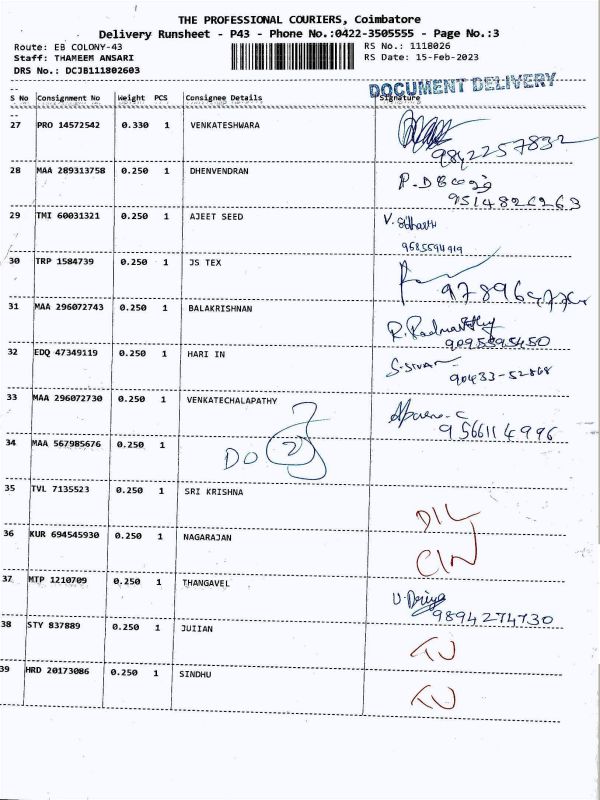 THE PROFESSIONAL COURIERS, Coimbatore
Delivery Runsheet - P43 - Phone No.:0422-3505555 - Page No.:3
Route: EB COLONY-43
RS No.: 1118026
Staff: THAMEEM ANSARI
RS Date: 15-Feb-2023
DRS No.: DCJB111802603
DOCUMENT DELIVERY
S No Consignment No Weight PCS Consignee Details Signature
27 PRO 14572542 0.330 1 VENKATESHWARA
9842257832
28 MAA 289313758 0.250 1 DHENVENDRAN
9514826263
29 TMI 60031321 0.250 1 AJEET SEED
V. Sidharth
9585594919
30 TRP 1584739 0.250 1 JS TEX
31 MAA 296072743 0.250 1 BALAKRISHNAN
32 EDQ 47349119 0.250 1 HARI IN
S. Sivan
90433-52868
33 MAA 296072730 0.250 1 VENKATECHALAPATHY
9566114996
34 MAA 567985676 0.250 1
DO 2
35 TVL 7135523 0.250 1 SRI KRISHNA
DIL
36 KUR 694545930 0.250 1 NAGARAJAN
CIN
37 MTP 1210709 0.250 1 THANGAVEL
9894274730
38 STY 837889 0.250 1 JUIIAN
39 HRD 20173086 0.250 1 SINDHU